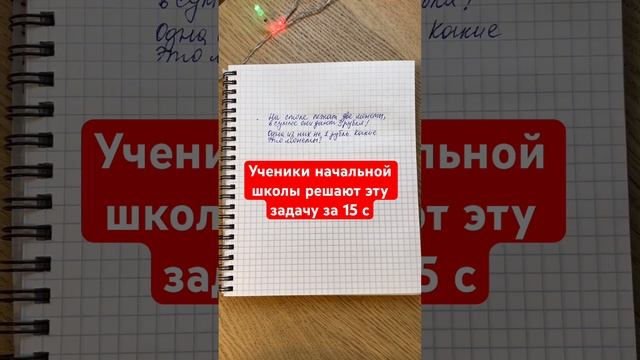 в сумме
Одна Какие
это мо
На столе лежат две монеты,
в сумме они дают 3 рубля!
Одна из них не 1 рубль. Какие
это монеты?
Ученики начальной
школы решают эту
задачу за 15 с
Уче ьной
шко т эту
зада 5 с